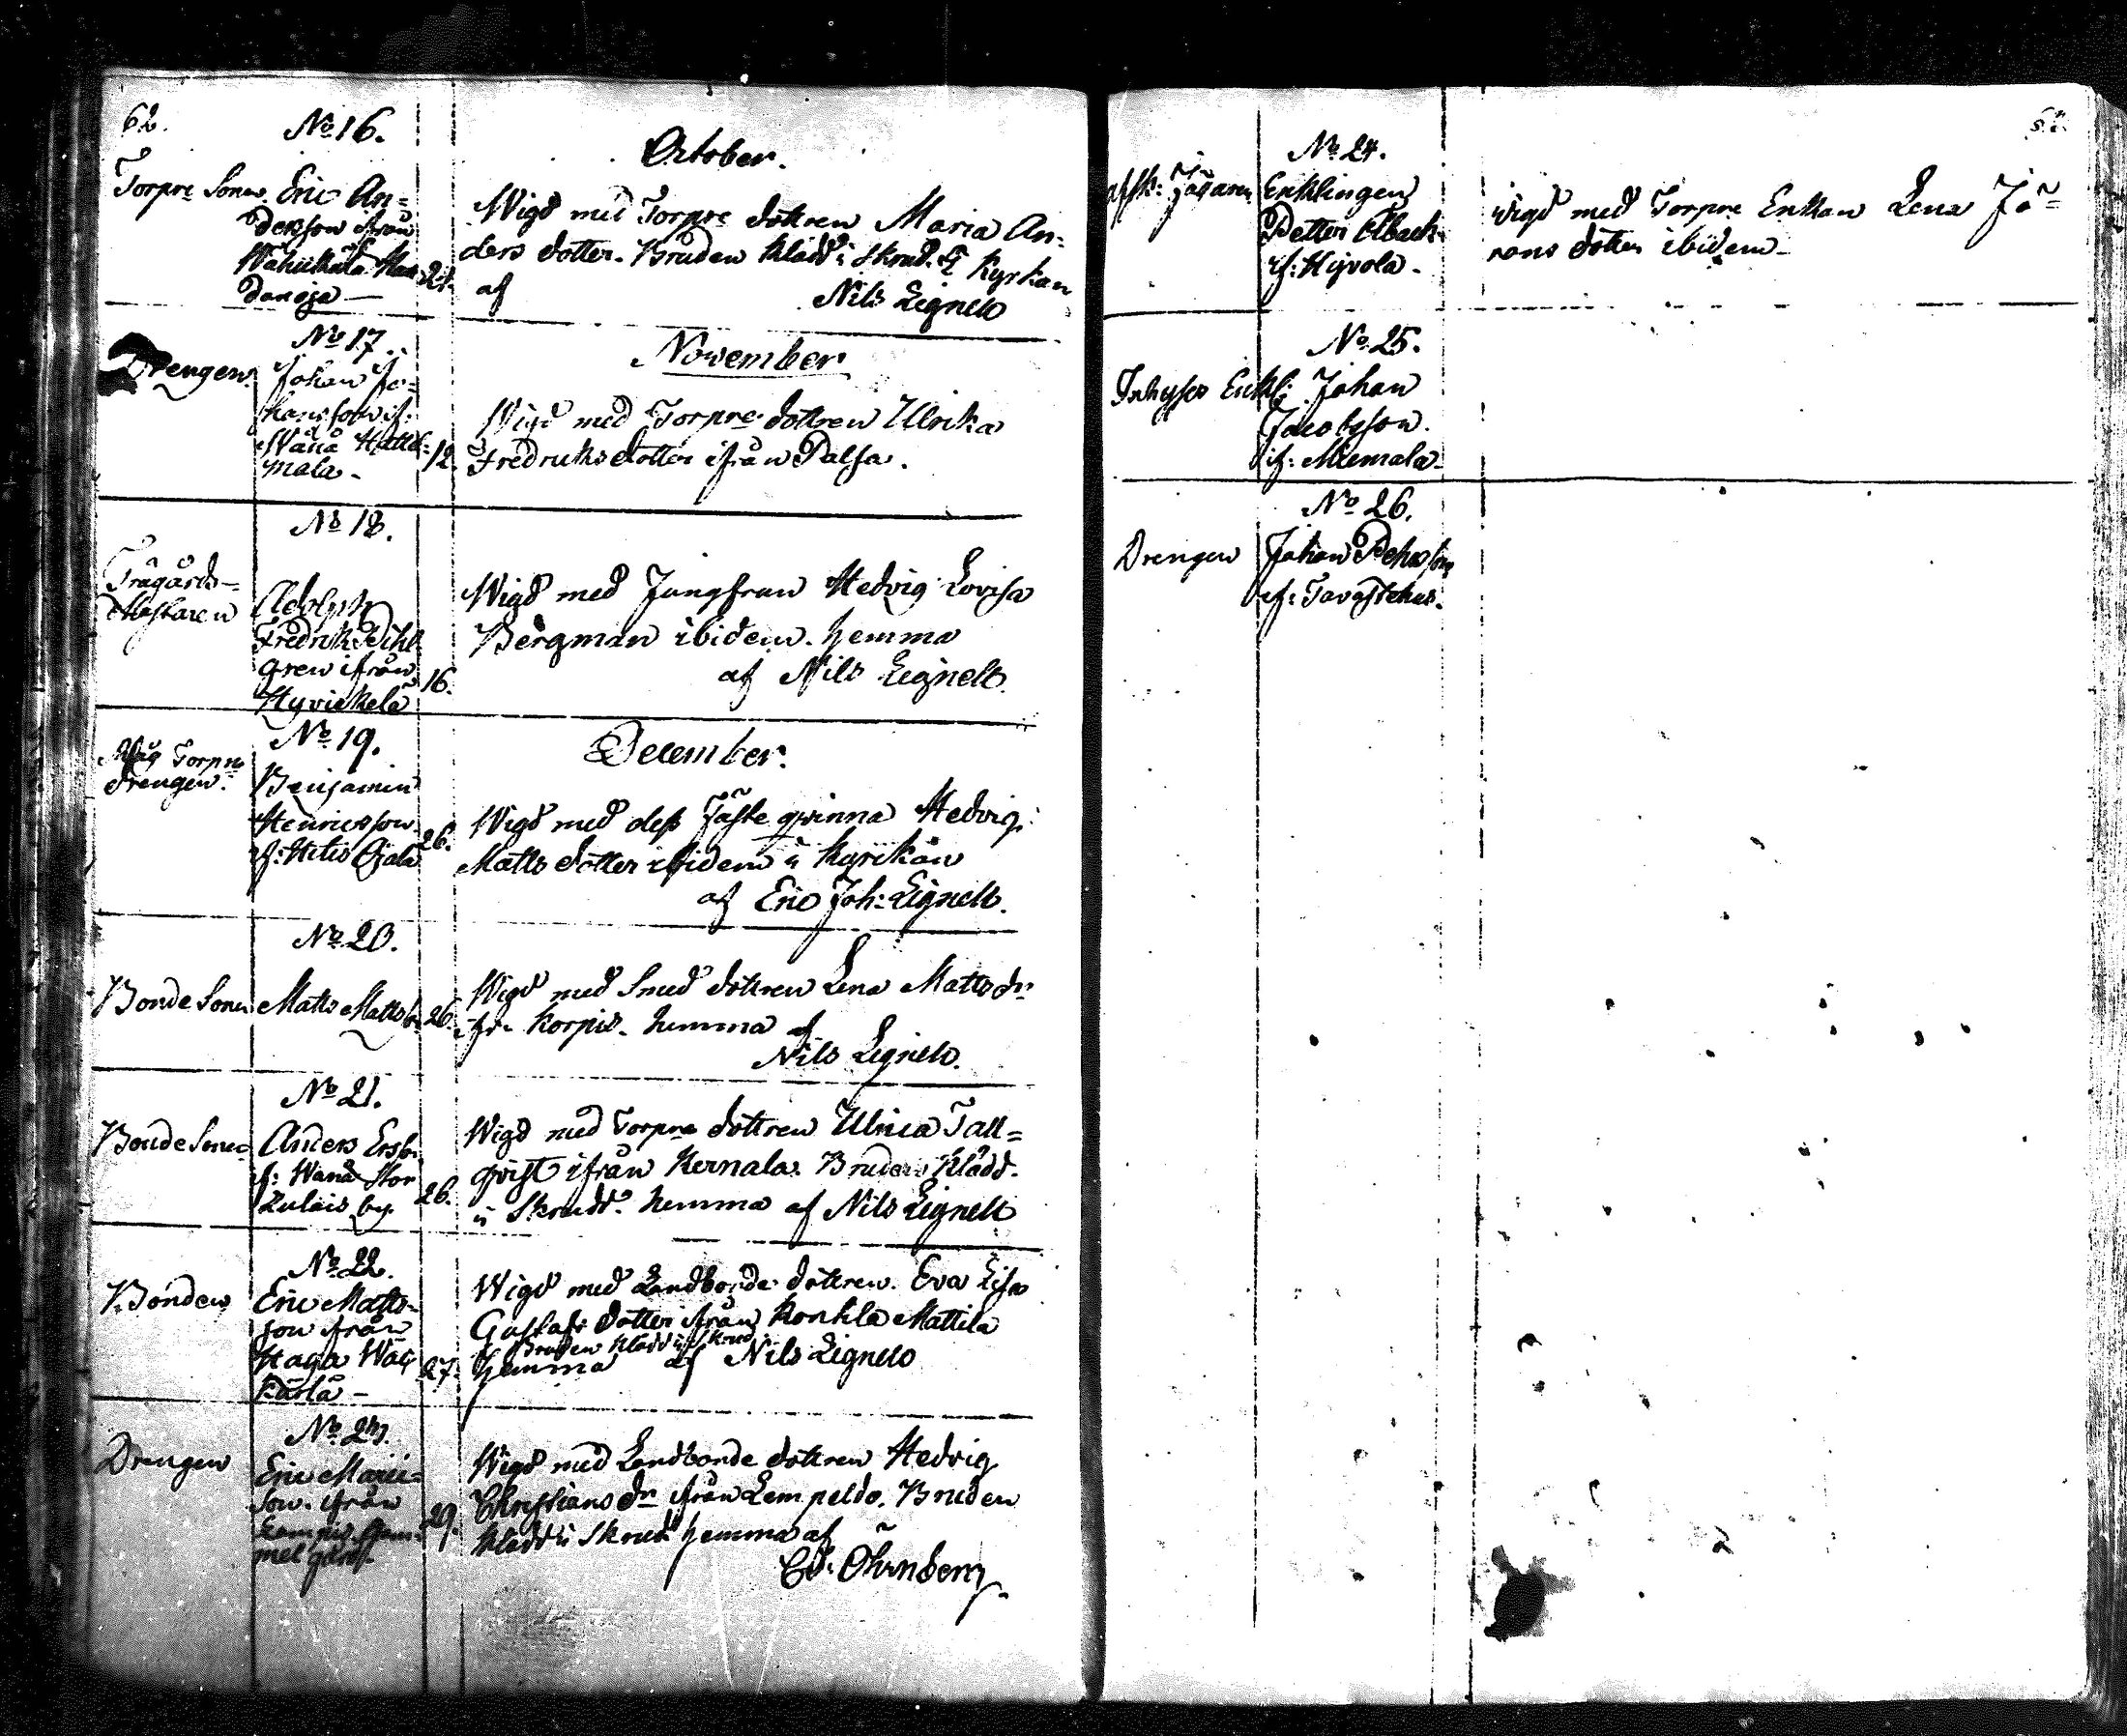 62.
No 16.
October.
Torpre Sonen Eric An=
dersson ifrån
Wahiikkala Han
danoja —
24.
Wigd med Torpre dottren Maria An=
ders dotter. Bruden klädd i skrud. I Kyrkan
af Nils Lignell
No 17.
November
Drengen Johan Jo=
hansson if:
Wånå Hattel=
mala -
12.
Wigd med Torpre dottren Ulrika
Fredriks dotter ifrån Palsa.
No 18.
Trägårds=
Mästaren
Adolph
Fredrik
gren ifrån
16.
Wigd med Jungfrun Hedvig Lovisa
Bergman ibidem. hemma
af Nils Lignell.
No 19.
December.
Måg Torpre
drengen.
Benjamin
Henricsson
if: Ojala
26.
Wigd med dess Fäste qvinna Hedvig
Matts dotter ibidem i Kyrckan
af Eric Joh: Lignell.
No 20.
Bonde Sonen Matts Matts
26.
Wigd med Smed dottren Lena Matts dr
ifr. Korpis. hemma af
Nils Lignell.
No 21.
Bonde Sonen
Anders Erss
if: Wånå Stor
Luhais by.
26.
Wigd med Torpre dottren Ulrica Tall=
qvist ifrån Kernala. Bruden klädd
i Skrudd. hemma af Nils Lignell
No 22.
Bonden
Eric Matts=
son ifrån
Haga
27.
Wigd med Landbonde dottren. Eva Lisa
Gustafs dotter ifrån Konkla Mattila
Bruden klädd i skrud
hemma af Nils Lignell
No 23.
Drengen
Eric
son. ifrån
29.
Wigd med Landbonde dottren Hedvig
Christians dr ifrån Lempeldo. Bruden
klädd i Skrud hemma af
Öhrnberg
No 24.
afsk: Jägaren Enklingen
Petter Aback
if: Hyvola.
wigd med Torpre Enkan Lena Jö=
rans dotter ibidem
No 25.
Inhyses Enkl: Johan
Jacobsson.
if: Miemala
No 26.
Drengen Johan
if: Tavastehus.